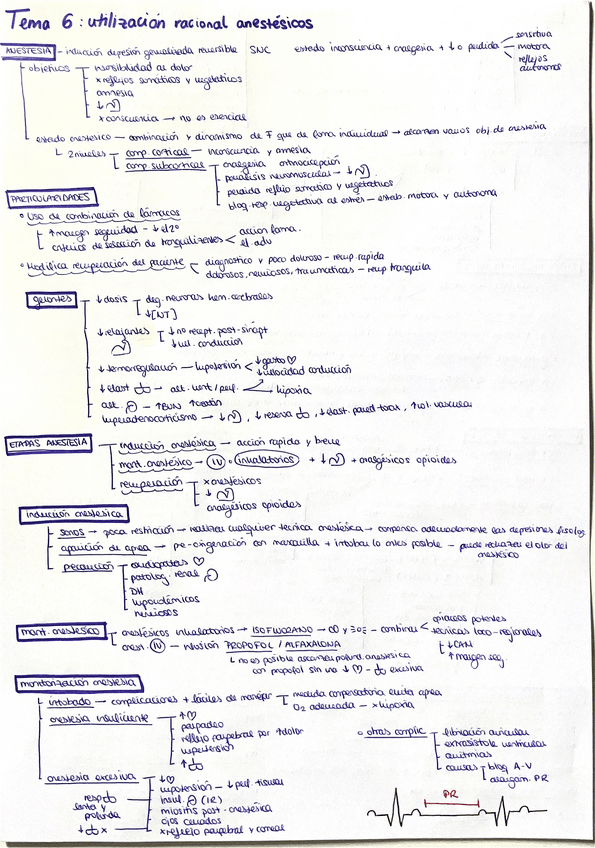 Tema 6: utilización racional anestésicos
ANESTESIA - inducción depresión generalizada reversible SNC estado inconsciencia + analgesia + ↓ o perdida
sensitiva
motora
reflejos autónomos
objetivos
insensibilidad al dolor
x reflejos somáticos y vegetativos
amnesia
↓
x consciencia → no es esencial
estado anestesico — combinación y dinamismo de F que de forma individual → alcanzan varios obj. de anestesia
2 niveles
comp. cortical — inconsciencia y amnesia
comp subcortical
analgesia antinocicepción
paralisis neuromuscular — ↓
perdida reflejo somatico y vegetativos
bloq. resp vegetativa al estrés — estab. motora y autonoma
PARTICULARIDADES
° Uso de combinación de fármacos
↑ margen seguridad - ↓ el 2º
criterios de selección de tranquilizantes
accion farma.
ef. adv
° Modifica recuperación del paciente
diagnostico y poco doloroso - recup. rapida
dolorosos, nerviosos, traumaticas - recup tranquila
gerontes
↓ dosis
deg. neuronas hem. cerebrales
↓ [NT]
↓ relajantes
↓ no recept. post-sinapt
↓ vel. conduccion
↓ termorregulación — hipotension
↓ gasto ♡
↓ velocidad conducción
↓ elast — alt. vent / perf. hipoxia
alt. — ↑ BUN ↑ creatin
hiperadrenocorticismo — ↓ , ↓ reserva , ↓ elast. pared torax, ↑ vol. vascular
ETAPAS ANESTESIA
inducción anestésica — acción rapida y breve
mant. anestésico — IV o inhalatorios + ↓ + analgésicos opioides
recuperación
x anestésicos
↓
analgésicos opioides
inducción anestesica
sanos — poca restricción — realizar cualquier tecnica anestésica — compensa adecuadamente las depresiones fisiolog
aparición de apnea — pre-oxigenación con mascarilla + intobar lo antes posible — puede rechazar el olor del anestésico
precaución
cardiopatas ♡
patolog. renal
DH
hipovolémicos
nerviosos
mant. anestésico
anestésicos inhalatorios → ISOFLURANO → — combinar
opiaceos potentes
tecnicas loco-regionales
↓ CAM
↑ margen seg.
anes. IV — infusión PROPOFOL / ALFAXALONA
no es posible alcanzar profund. anestesica
con propofol sin una ↓ ♡ - excesiva
monitorización anestesia
intobado — complicaciones + fáciles de manejar
medida compensatoria evita apnea
O₂ adecuada — x hipoxia
anestesia insuficiente
↑ ♡
parpadeo
reflejo palpebral por ↑ dolor
hipertensión
↑
anestesia excesiva
↓ ♡
hipotensión — ↓ perf. tisular
insuf. (IR)
miositis post-anestésica
ojos centrados
x reflejo palpebral y corneal
resp lenta y profunda
↓ x
° otras complic
fibrilación auricular
extrasistole ventricular
arritmias
causas
bloq A-V
alargam. PR
PR